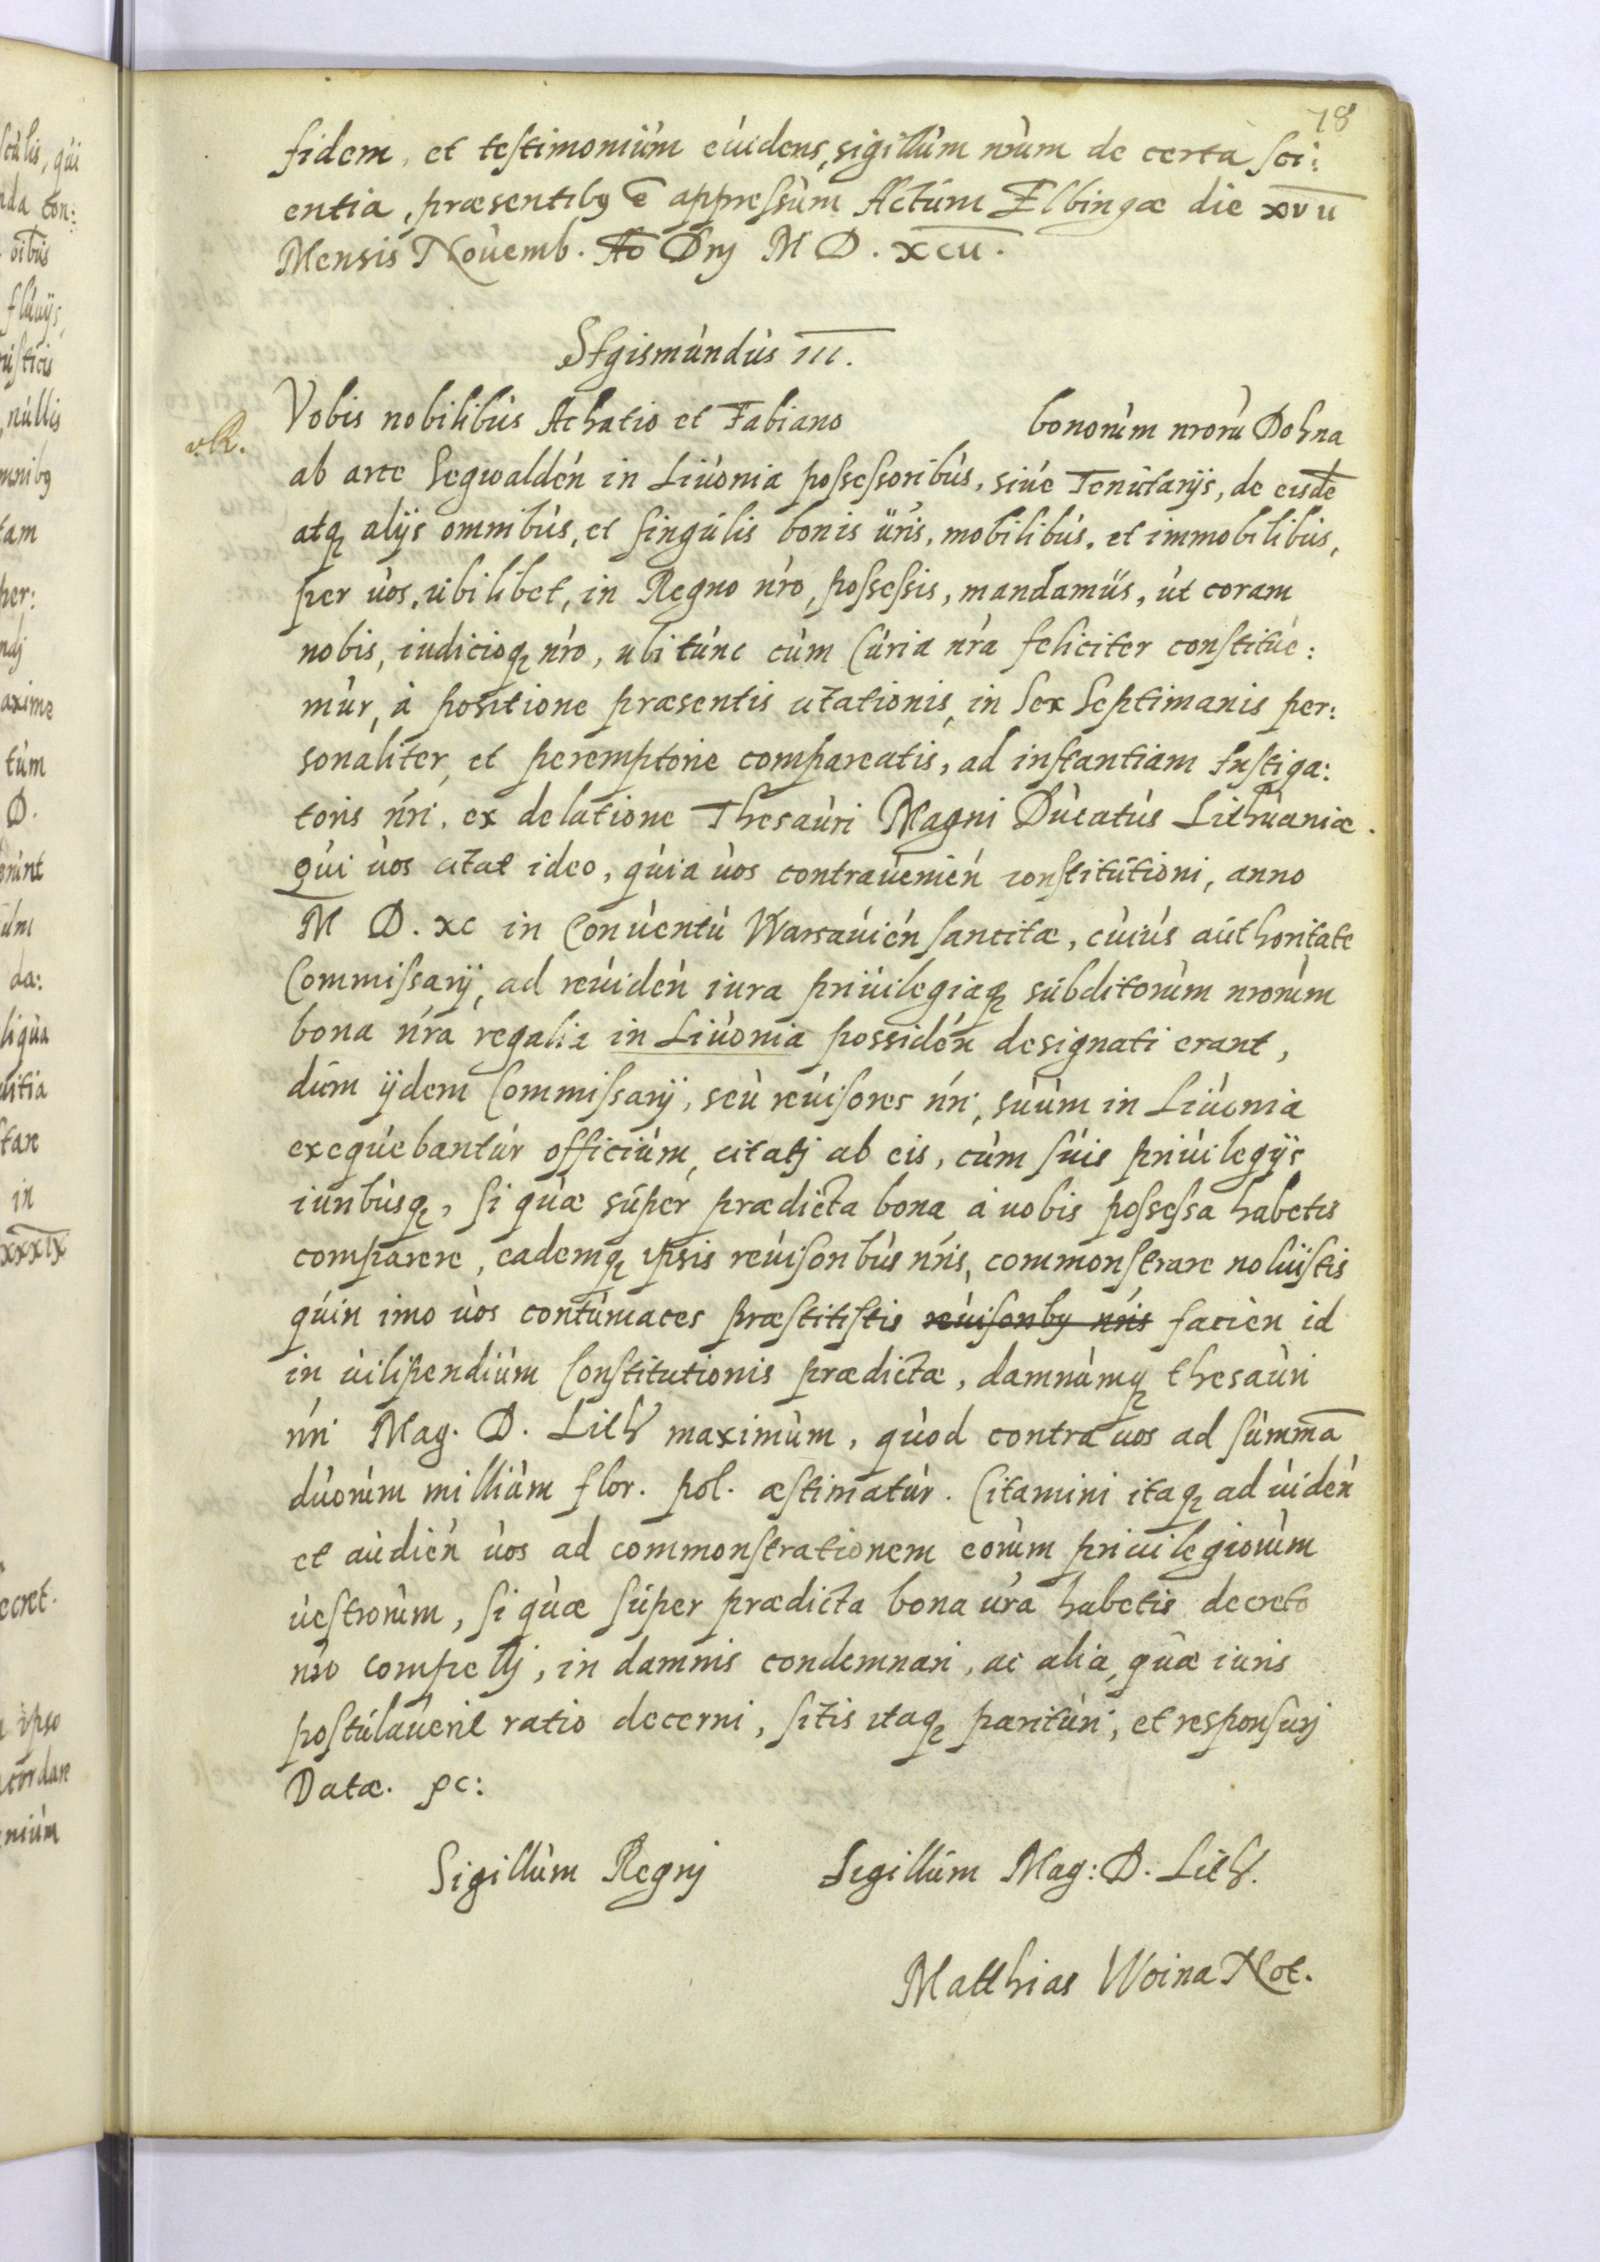 78
fidem, et testimoniùm eùidens, sigillùm nrùm de certa sci:
entia, præsentibꝯ ē appressùm Actùm Elbingæ die xvii
Mensis Noùemb. Ao Dnj M D. xcii.
Sigismùndùs III.
Vobis nobilibùs Achatio et Fabiano bonorùm nrorù Dohna
ab arce Segwalden in Liùonia possessoribùs, siùe Tenùtarijs, de eisdē
atqꝫ alijs omnibùs, et singùlis bonis ùris, mobilibùs, et immobilibùs,
per ùos, ùbilibet, in Regno nro, possessis, mandamùs, ùt coram
nobis, iudicioqꝫ nro, ubi tùnc cùm Cùria nra feliciter constitùe:
mùr, à positione præsentis citationis, in sex septimanis per:
sonaliter, et peremptorie compareatis, ad instantiam Instiga:
toris nri, ex delatione Thesaùri Magni Dùcatùs Lithùaniæ.
qùi ùos citat ideo, qùia ùos contraùenien constitùtioni, anno
M D. xc in Conùentù Warsaùien sancitæ, cùiùs aùthoritate
Commissarij, ad reùiden iura priùilegiaqꝫ sùbditorùm nrorùm
bona nra regalia in Liùonia possiden designati erant,
dùm ijdem Commissarij, seù reùisores nri, sùùm in Liùonia
exeqùebantùr officiùm, citatj ab eis, cùm sùis priùilegijs
iuribùsqꝫ, si qùæ sùper prædicta bona à uobis possessa habetis
comparere, eademqꝫ ipsis reùisoribùs nris, commonstrare nolùistis
qùin imo ùos contùmaces præstitistis reùisoribꝯ nris facien id
in ùilipendiùm Constitutionis prædictæ, damnùmqꝫ thesaùri
nri Mag. D. Lith maximùm, qùod contra uos ad sùmmā
dùorùm milliùm flor. pol. æstimatùr. Citamini itaqꝫ ad ùiden
et aùdien ùos ad commonstrationem eorùm priuilegiorùm
ùestrorùm, si qùæ sùper prædicta bona ùra habetis decreto
nro compellj, in damnis condemnari, ac alia, qùæ iuris
postùlaùerit ratio decerni, sitis itaqꝫ paritùri, et responsurj
Datæ. ꝛc:
Sigillùm Regnj Sigillùm Mag: D. Lith.
Matthias Woina Not.